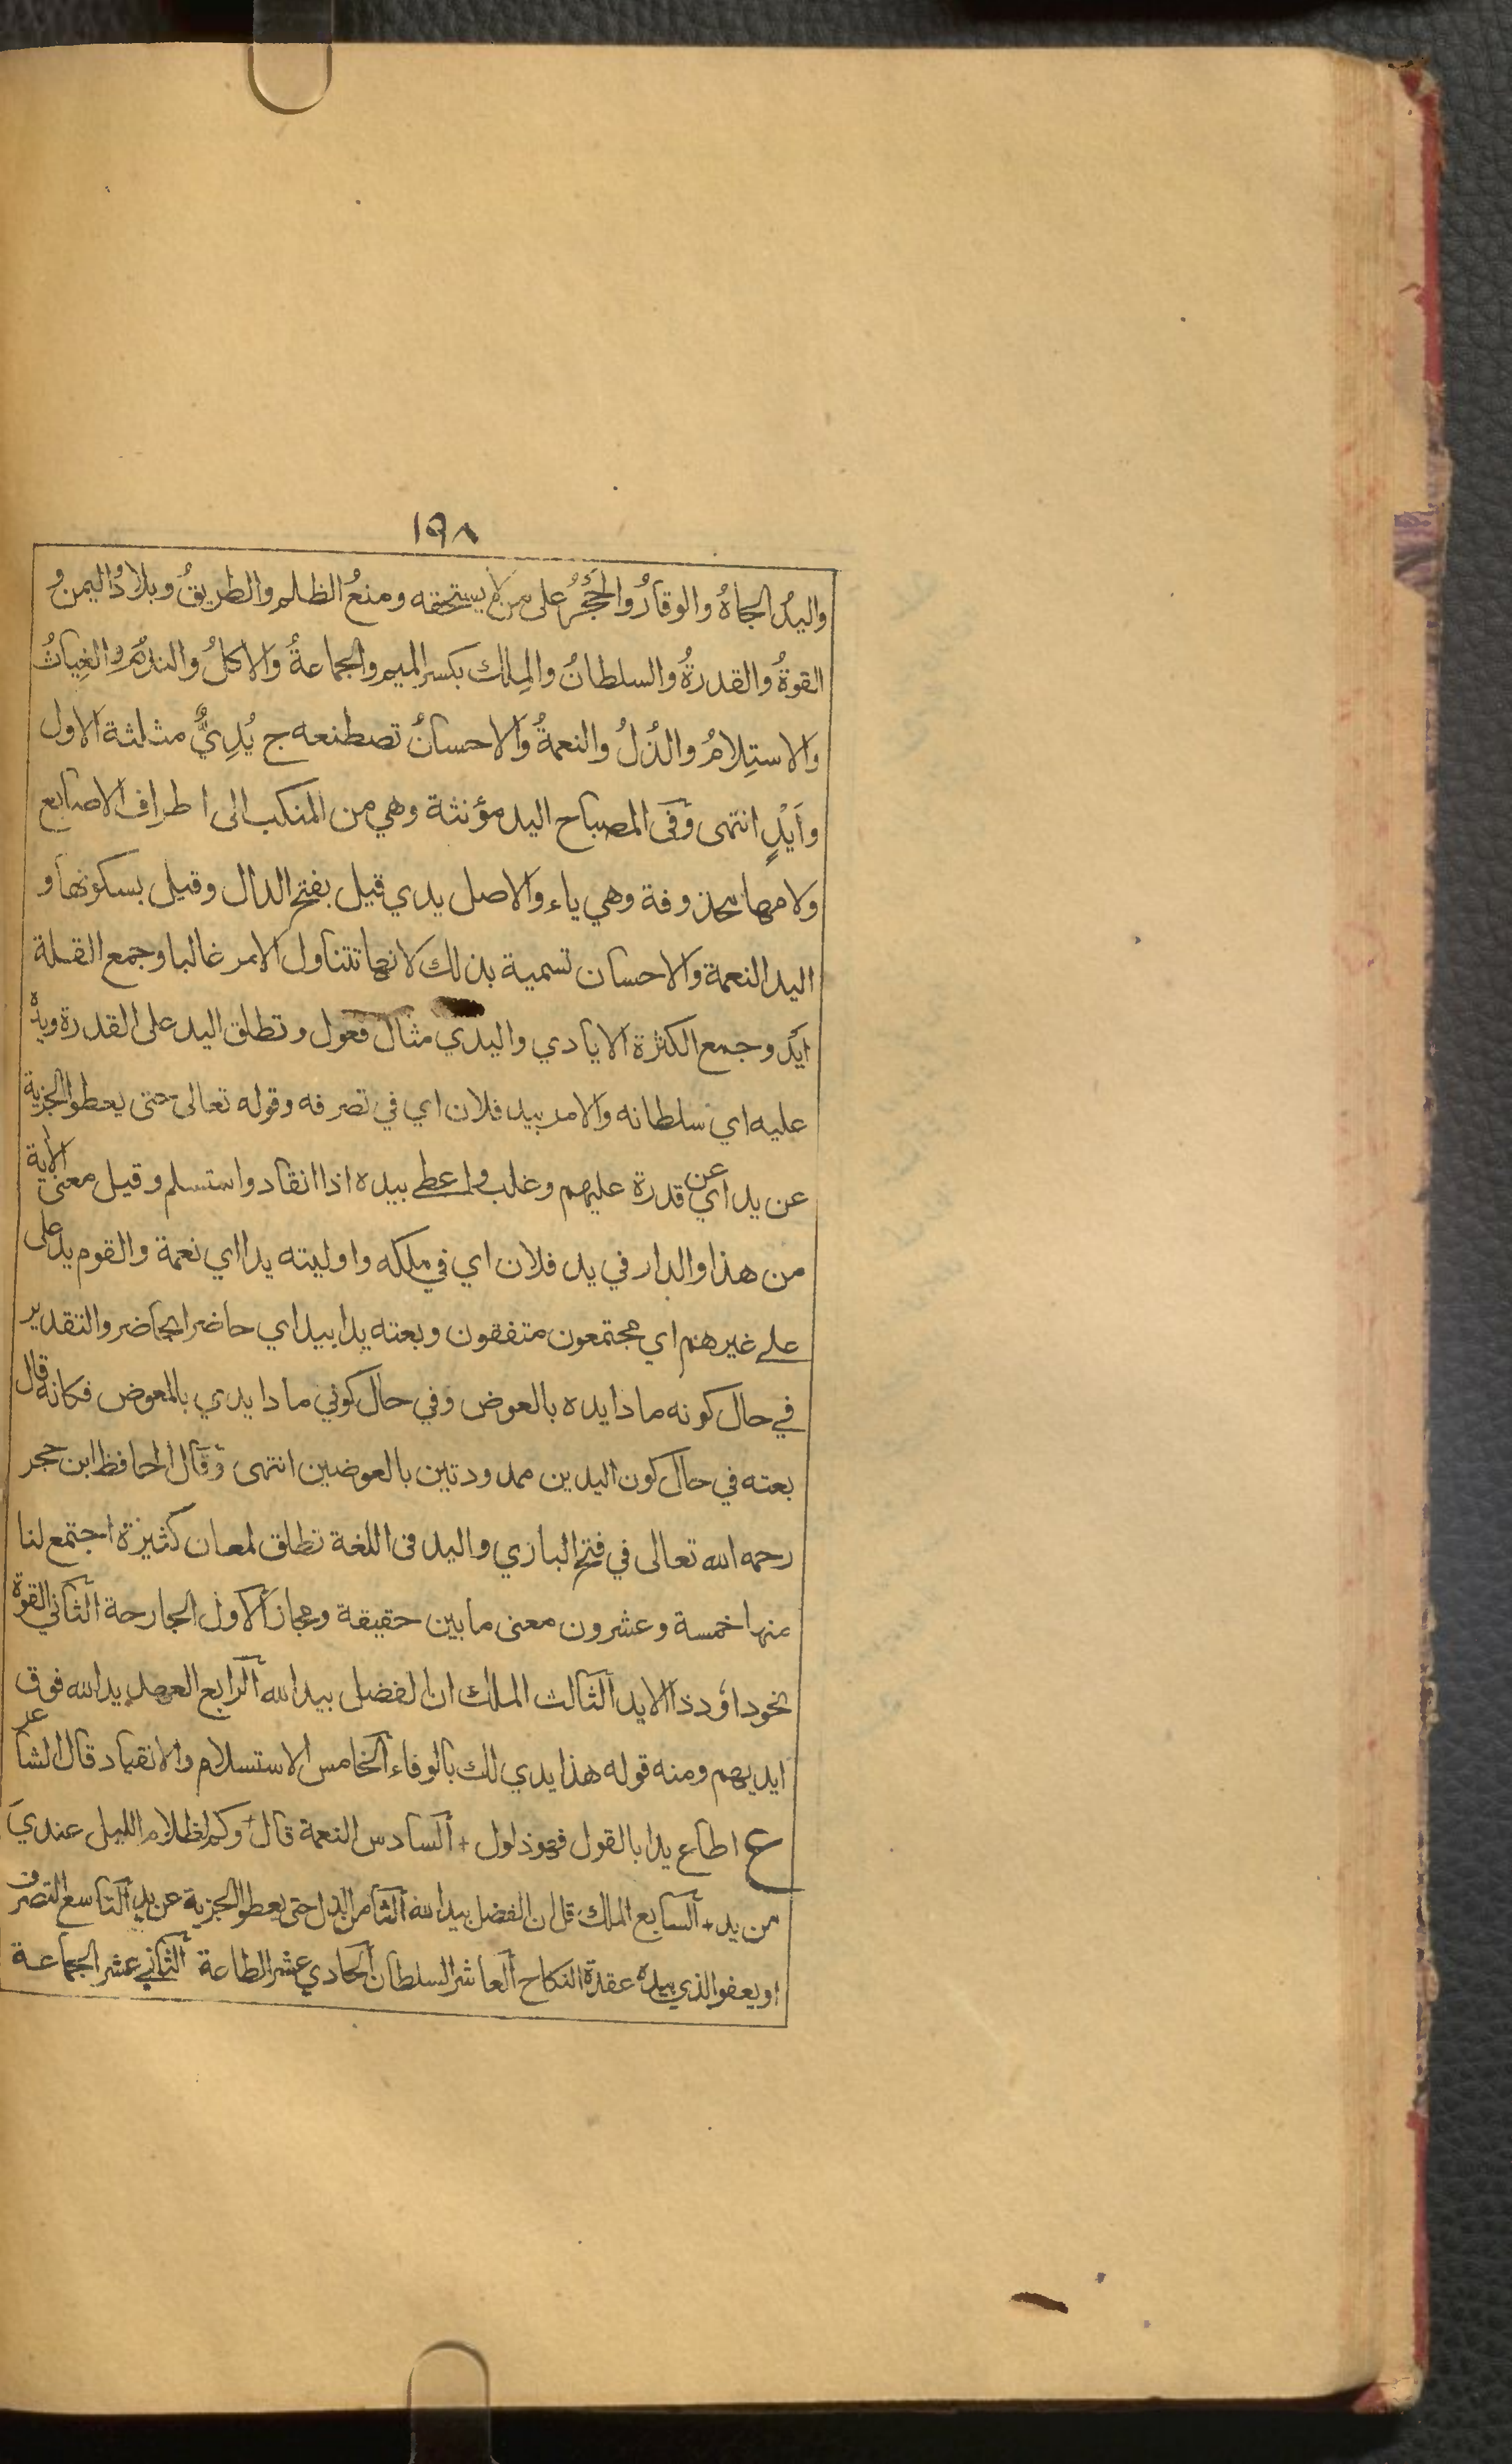 ١٩٨
واليدُ الجاهُ والوقارُ والحَجْرُ على من يستحقه ومنعُ الظلم والطريقُ وبلادُ اليمن و
القوةُ والقدرةُ والسلطانُ والمِلك بكسر الميم والجماعةُ والاكلُ والندمُ والغِياثُ
والاستِلامُ والذُلُ والنعمةُ والاحسانُ تصطنعه ج يُدِيٌّ مثلثة الاول
وأَيْدٍ انتهى وفى المصباح اليد مؤنثة وهي من المنكب الى اطراف الاصابع
ولامها محذوفة وهي ياء والاصل يدي قيل بفتح الدال وقيل بسكونها و
اليد النعمة والاحسان تسمية بذلك لانها تتناول الامر غالبا وجمع القلة
ايد وجمع الكثرة الايادي واليدي مثال فعول وتطلق اليد على القدرة ويده
عليه اي سلطانه والامر بيد فلان اي في تصرفه وقوله تعالى حتى يعطوا الجزية
عن يد اي عن قدرة عليهم وغلب واعطى بيده اذا انقاد واستسلم وقيل معنى الاية
من هذا والدار في يد فلان اي في ملكه واوليته يدا اي نعمة والقوم يد على
على غيرهم اي مجتمعون متفقون وبعته يدا بيد اي حاضرا بحاضر والتقدير
في حال كونه مادا يده بالعوض وفي حال كوني مادا يدي بالمعوض فكانه قال
بعته في حال كون اليدين ممدودتين بالعوضين انتهى وقال الحافظ ابن حجر
رحمه الله تعالى في فتح الباري واليد فى اللغة تطلق لمعان كثيرة اجتمع لنا
منها خمسة وعشرون معنى ما بين حقيقة ومجاز الاول الجارحة الثاني القوة
نحو داؤد ذا الايد الثالث الملك ان الفضل بيد الله الرابع العهد يد الله فوق
ايديهم ومنه قوله هذا يدي لك بالوفاء الخامس الاستسلام والانقياد قال الشاعر
ع اطاع يدا بالقول فهو ذلول + السادس النعمة قال وكم لظلام الليل عندي
من يد + السابع الملك قل ان الفضل بيد الله الثامن الذل حتى يعطوا الجزية عن يد التاسع التصرف
او يعفو الذي بيده عقدة النكاح العاشر السلطان الحادي عشر الطاعة الثاني عشر الجماعة